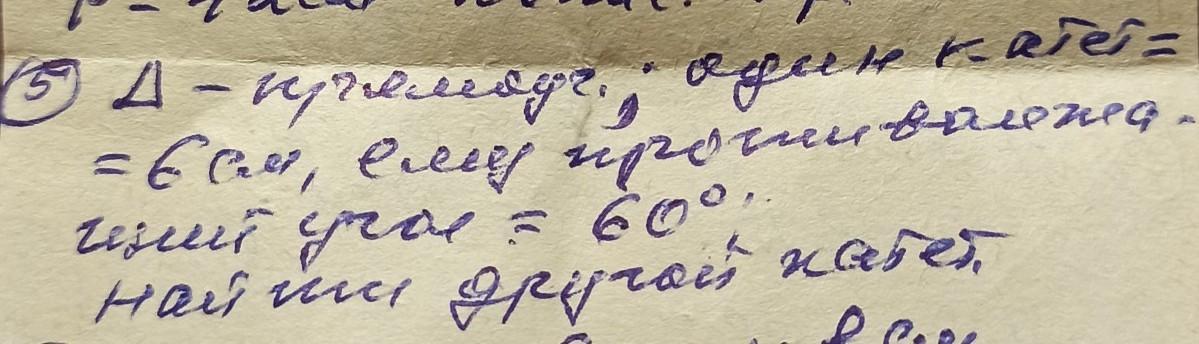 ⑤ Δ - прямоуг.; один катет =
= 6 см, ему противолежа-
щий угол = 60°;
найти другой катет.